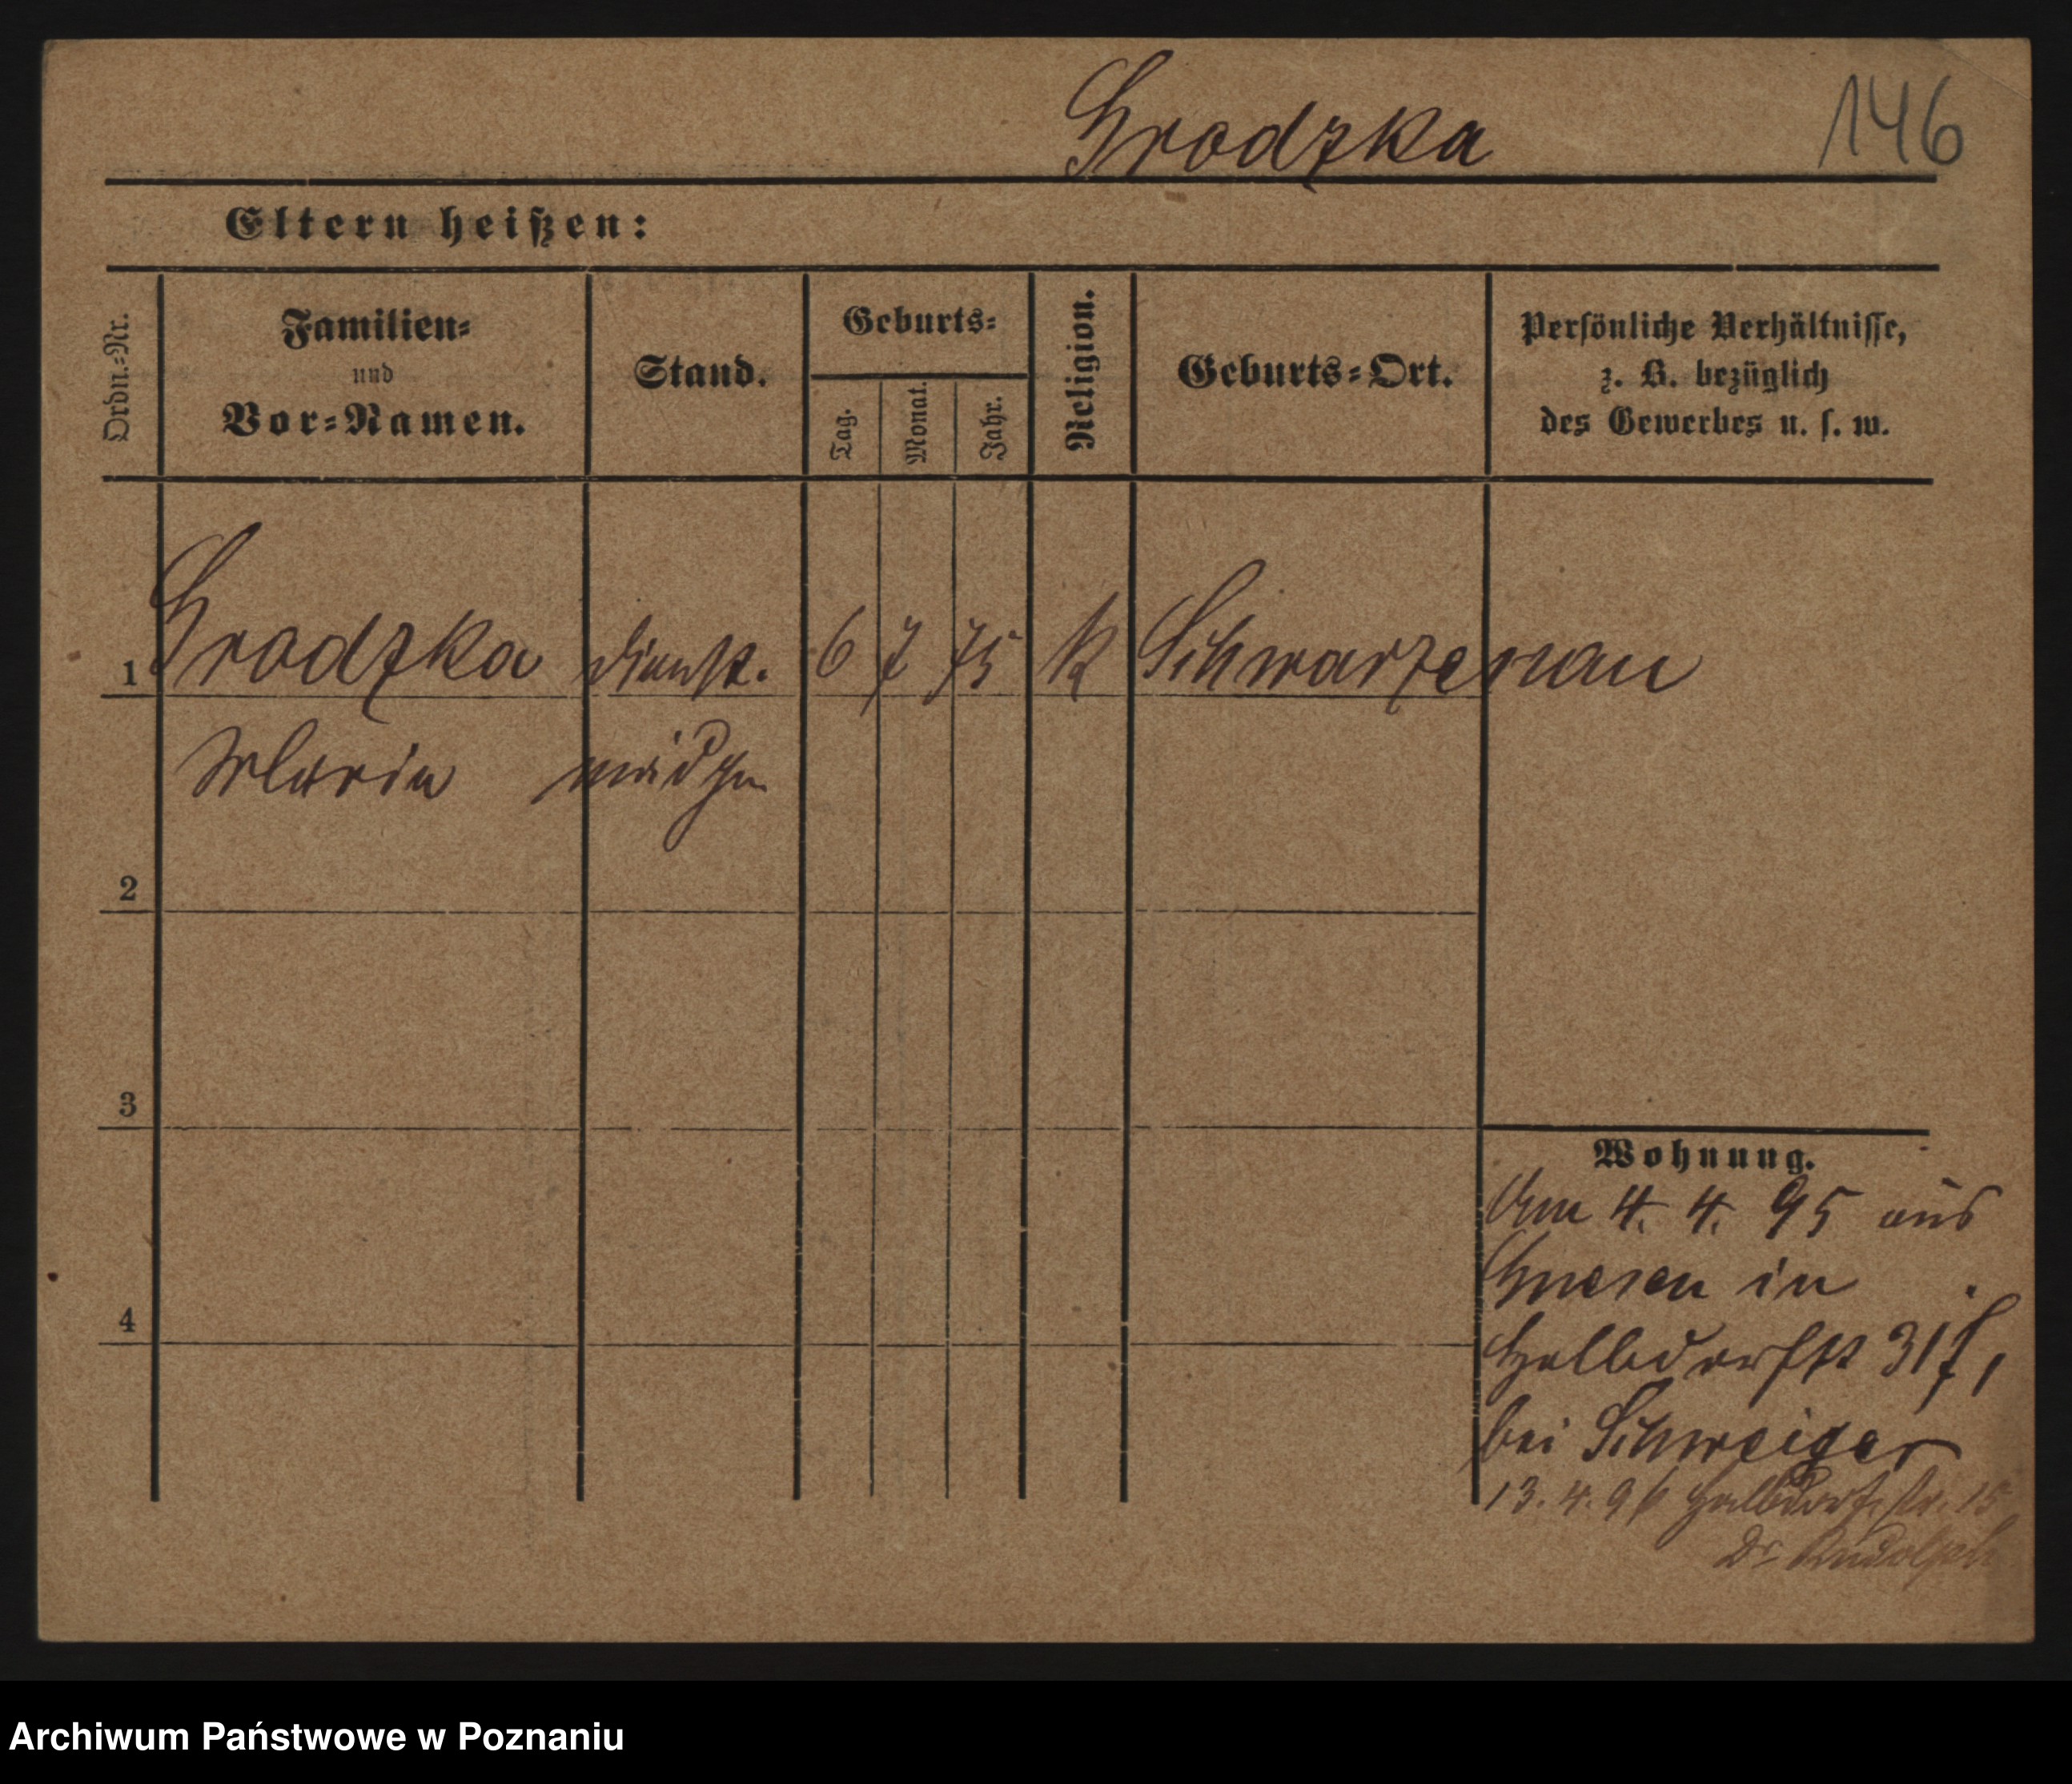 Grodzka
146
Eltern heißen:
Ordn.-Nr.
Familien-
und
Vor-Namen.
Stand.
Geburts-
Tag.
Monat.
Jahr.
Religion.
Geburts-Ort.
Persönliche Verhältnisse,
z. B. bezüglich
des Gewerbes u. s. w.
1 Grodzka Dienst. 6 7 75 k Schwarzenau
Maria mädchen
2
3
4
Wohnung.
Am 4. 4. 95 aus
Gnesen in
Halbdorfstr 31
bei Schweiger
13. 4. 96 Halbdorfstr. 15
Dr Rudolph
Archiwum Państwowe w Poznaniu